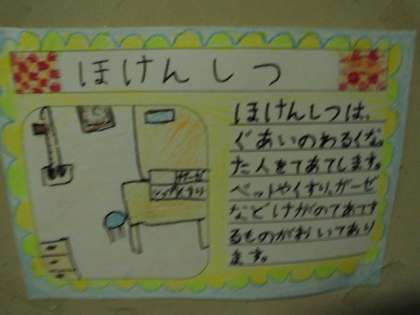 ほけんしつ
ほけんしつは、
ぐあいのわるくな
た人をてあてします。
ベットやくすり、ガーゼ
などけがのてあてす
るものがおいてあり
ます。
ガーゼ